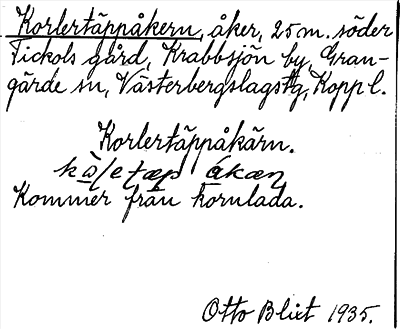 Korlertäppåkern, åker, 25 m. söder
Tickols gård, Krabbsjön by, Gran-
gärde sn, Västerbergslags tg, Kopp l.
Korlertäppåkärn.
Kommer från kornlada.
Otto Blixt 1935.